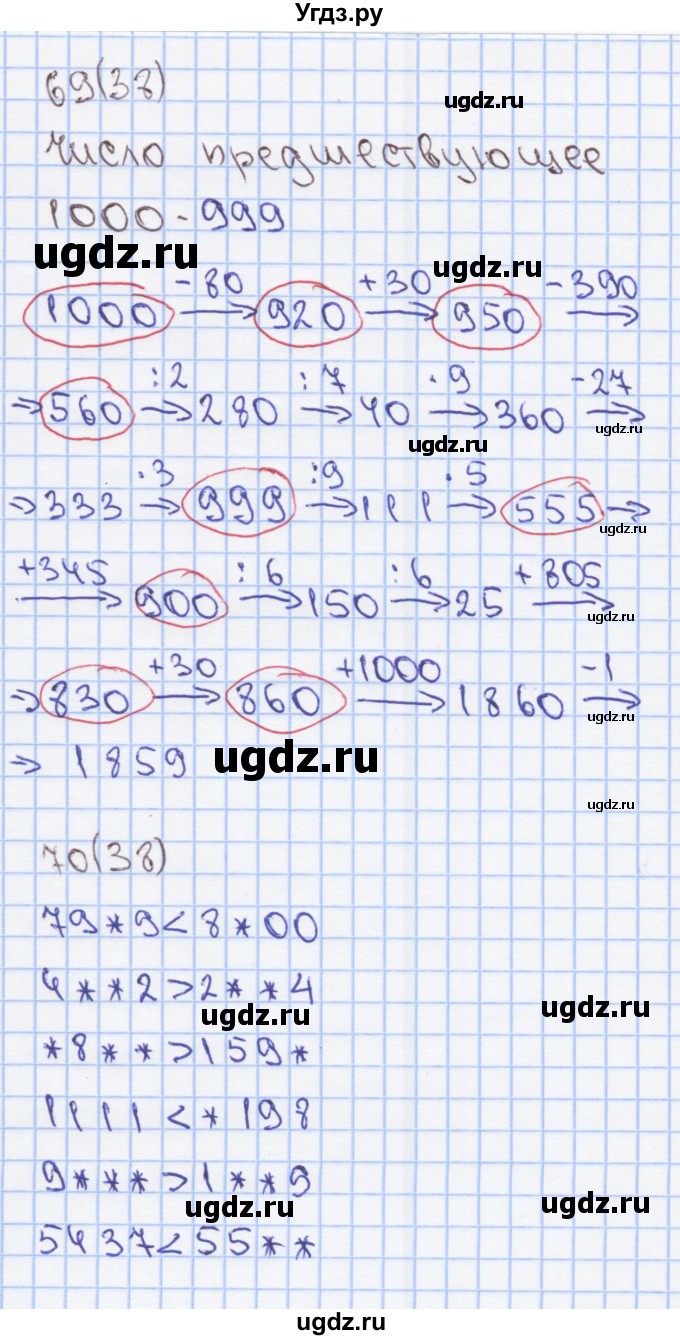 Угдз.ру
69(38)
ugdz.ru
Число предшествующее
1000 - 999
ugdz.ru
ugdz.ru
-80 +30 -390
1000 → 920 → 950 →
:2 :7 ·9 -27
→ 560 → 280 → 40 → 360 →
ugdz.ru
ugdz.ru
·3 :9 ·5
→ 333 → 999 → 111 → 555 →
ugdz.ru
+345 :6 :6 +805
→ 900 → 150 → 25 →
ugdz.ru
+30 +1000 -1
→ 830 → 860 → 1860 →
ugdz.ru
→ 1859
ugdz.ru
ugdz.ru
70(38)
79*9<8*00
4**2>2**4
ugdz.ru
ugdz.ru
*8**>159*
1111<*198
9***>1**9
ugdz.ru
ugdz.ru
5437<55**
ugdz.ru